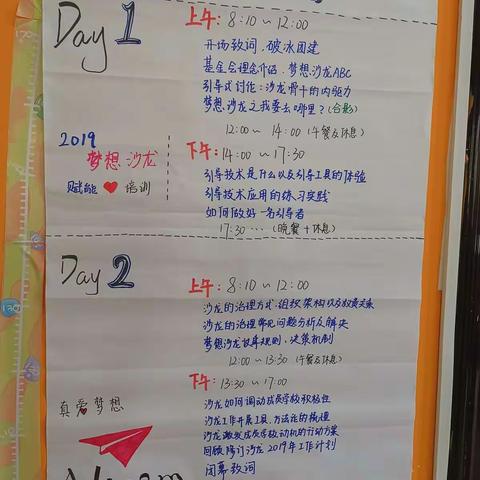 Day 1
上午: 8:10 ~ 12:00
开场致词，破冰团建
基金会理念介绍，梦想沙龙ABC
引导式讨论：沙龙骨干的内驱力
梦想沙龙之我要去哪里？(合影)
12:00 ~ 14:00 (午餐&休息)
2019
梦想·沙龙
赋能 培训
下午: 14:00 ~ 17:30
引导技术是什么以及引导工具的体验
引导技术应用的练习实践
如何做好一名引导者
17:30 ··· (晚餐+休息)
Day 2
上午: 8:10 ~ 12:00
沙龙的治理方式、组织架构以及权责关系
沙龙的治理常见问题分析及解决
梦想沙龙议事规则、决策机制
12:00 ~ 13:30 (午餐&休息)
下午: 13:30 ~ 17:00
沙龙如何调动成员学校积极性
沙龙工作开展工具、方法论的梳理
沙龙激发成员学校动机的行动方案
回顾修订沙龙2019年工作计划
闭幕致词
真爱梦想
130